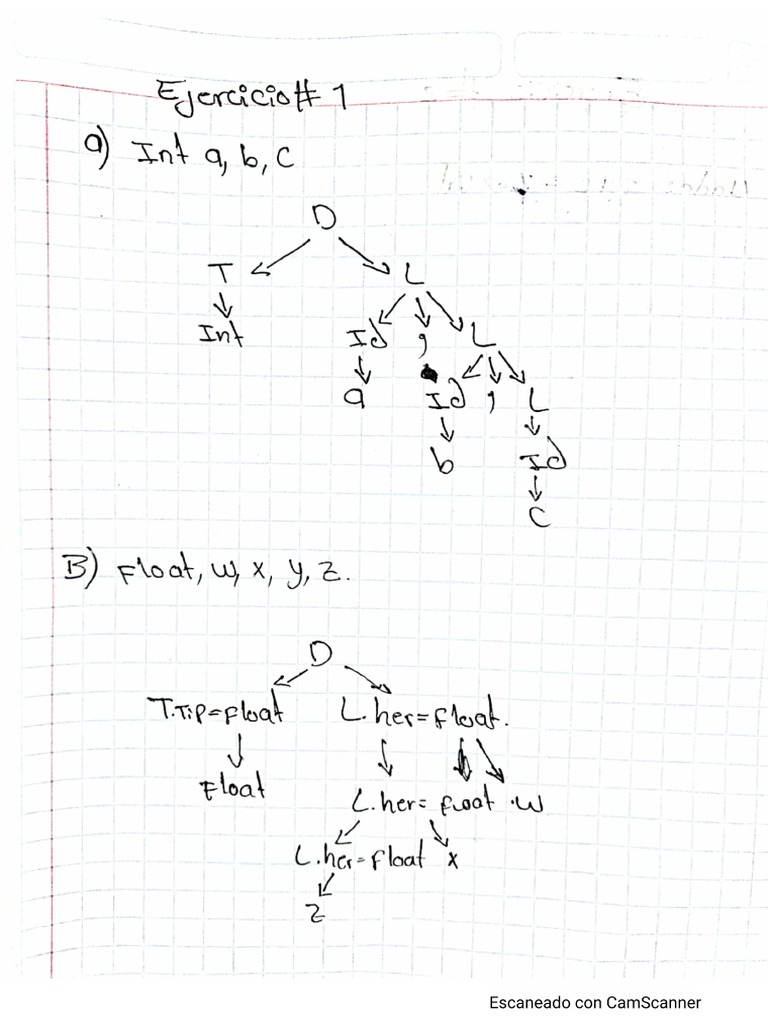 Ejercicio # 1
a) Int a, b, c
D
T L
Int Id , L
a Id , L
b Id
c
B) Float, w, x, y, z.
D
T.Tip=Float L.her=float.
Float L.her= float .w
L.her=float x
z
Escaneado con CamScanner